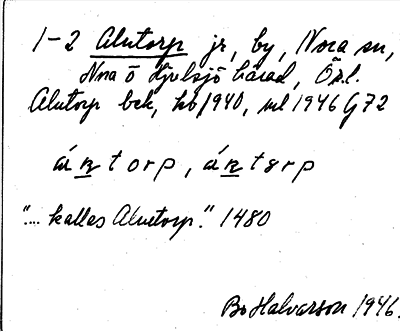 1-2 Alntorp jr, by, Nora sn,
Nora ö Hjulsjö härad, Ör.l.
Alntorp bek, kb 1940, ml 1946 G72
áṉtorp, áṉtərp
"... kallas Alnetorp." 1480
Bo Halvarson 1946.